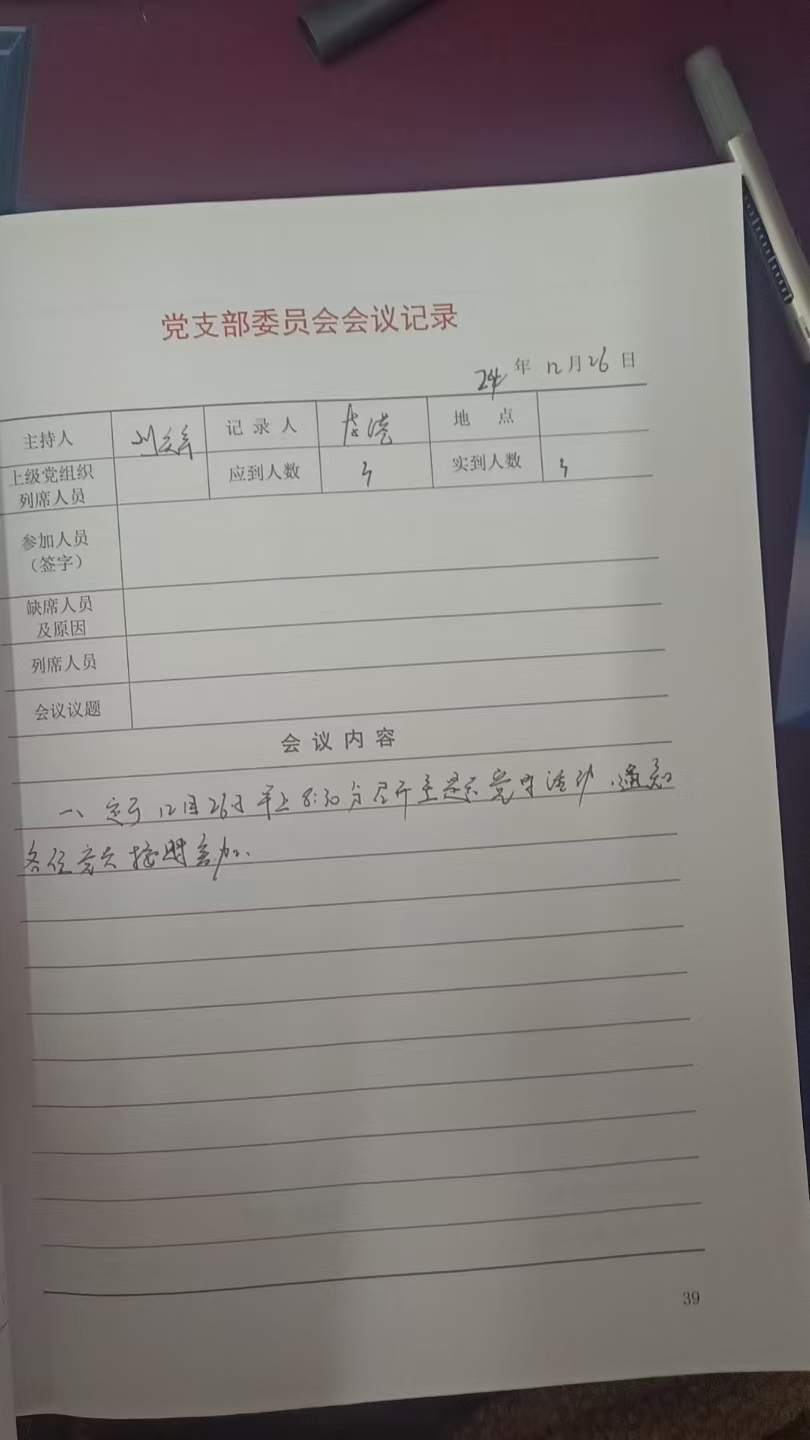 党支部委员会会议记录
24年12月26日
主持人 刘 记录人 地点
上级党组织列席人员 应到人数 3 实到人数 3
参加人员(签字)
缺席人员及原因
列席人员
会议议题
会议内容
一、定于12月26日早上8:30分召开主题党日活动,通知
各位党员按时参加.
39